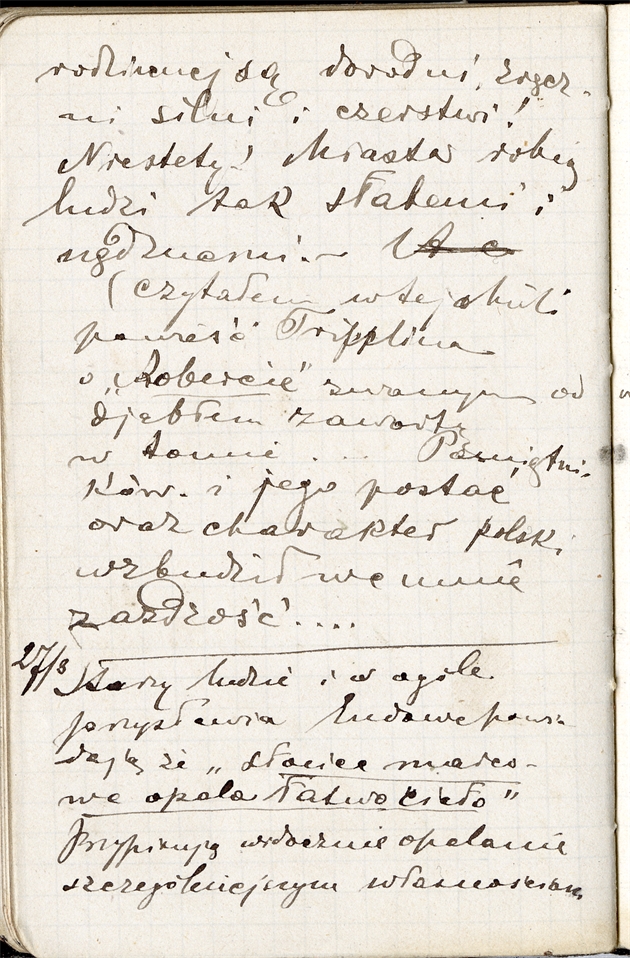 rodzinnej są dorodni, zręcz-
ni silni i czerstwi!
Niestety! Miasta robią
ludzi tak słabemi i
nędznemi. –
(czytałem w tej chwili
powieść Tripplina
o „Robercie" zwanym od
djebłem zawartą
w tomie ... Pamiętni-
ków. i jego postać
oraz charakter polski
wzbudził we mnie
zazdrość ....
27/3 Starzy ludzie i w ogóle
przysłowia ludowe powia-
dają że „słońce marco-
we opala łatwo ciało"
Przypisują widocznie opalanie
szczególniejszym własnościom